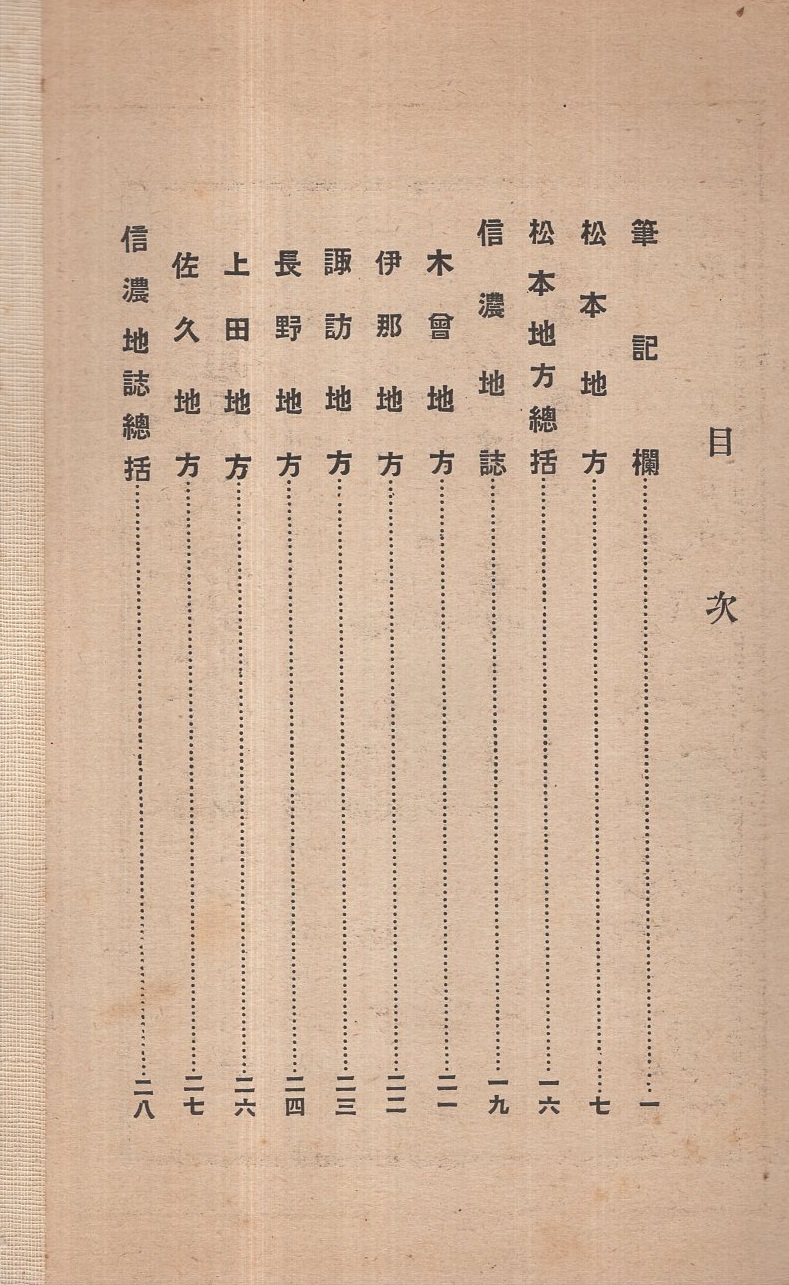 目次
筆記欄……一
松本地方……七
松本地方總括……一六
信濃地誌……一九
木曾地方……二一
伊那地方……二二
諏訪地方……二三
長野地方……二四
上田地方……二六
佐久地方……二七
信濃地誌總括……二八